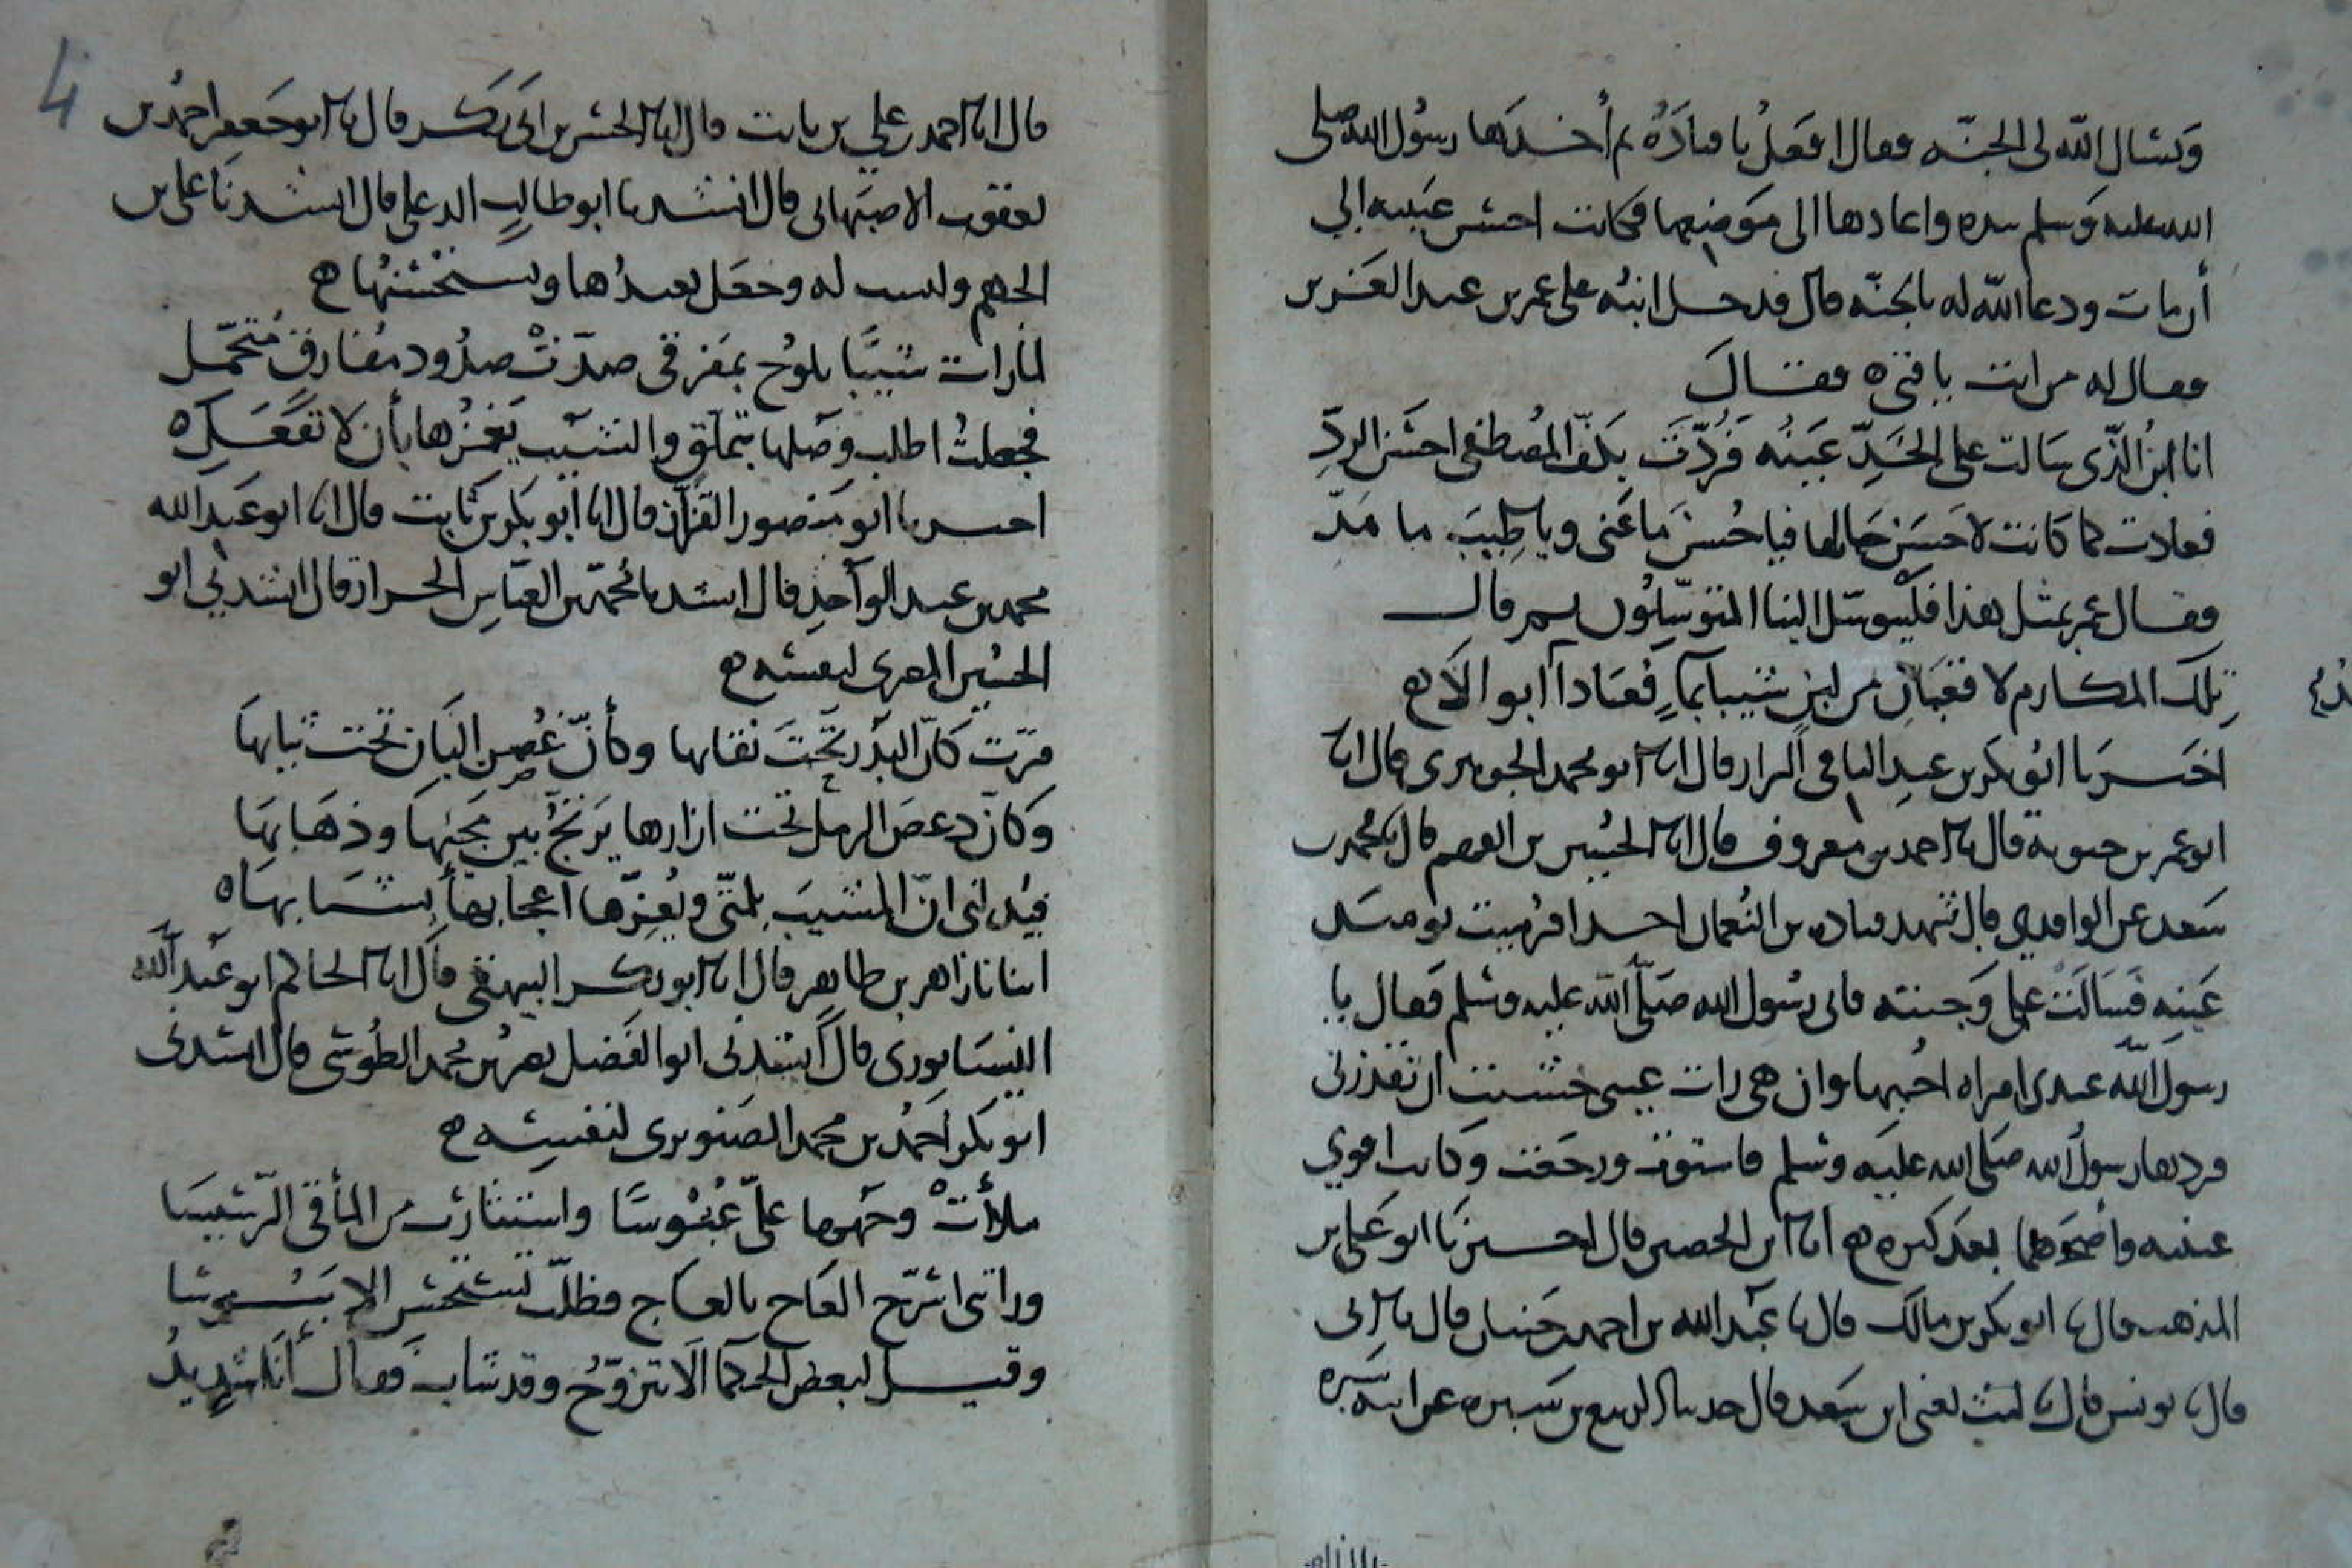 وتسال الله لى الجنه فقال افعل يا قتادة ثم أخذها رسول الله صلى
الله عليه وسلم بيده واعادها الى موضعها فكانت احسن عينيه الي
أن مات ودعا الله له بالجنه قال فدخل ابنه على عمر بن عبد العزيز
فقال له من انت يا فتى ه فقال
انا ابن الذي سالت على الخد عينه فردت بكف المصطفى احسن الرد
فعادت كما كانت لاحسن حالها فيا حسن ما عينى ويا طيب ما يد
فقال عمر بمثل هذا فليتوسل الينا المتوسلون ثم قال
تلك المكارم لا قعبان من لبن شيبا بماء فعادا ابوالا ه
اخبرنا ابو بكر بن عبد الباقي البزار قال انا ابو محمد الجوهرى قال انا
ابو عمر بن حيوية قال انا احمد بن معروف قال انا الحسين بن الفهم قال نا محمد بن
سعد عن الواقدي قال شهد قتاده بن النعمان احدا فرميت يومئذ
عينه فسالت على وجنته فاتى رسول الله صلى الله عليه وسلم فقال يا
رسول الله عندى امراه احبها وان هى رات عينى خشيت ان تقذرنى
فردها رسول الله صلى الله عليه وسلم فاستوت ورجعت وكانت اقوي
عينيه واصحهما بعد كبره ه انا ابن الحصين قال اخبرنا ابو على بن
المذهب قال نا ابو بكر بن مالك قال نا عبد الله بن احمد بن حنبل قال نا ابى
قال نا يونس قال نا ليث يعنى ابن سعد قال حدثنا الربيع بن سبره عن ابيه سبره
قال انا احمد بن علي بن ثابت قال انا الحسن بن ابى بكر قال انا ابو جعفر احمد بن
يعقوب الاصبهانى قال انشدنا ابو طالب الدعبلى قال انشدنا على بن
الجهم وليست له وجعل يعيدها ويستحسنها ه
لما رات شيبا يلوح بمفرقى صدت صدود مفارق متحمل
فجعلت اطلب وصلها بتملق والشيب يغمزها بأن لا تفعلى ه
اخبرنا ابو منصور القزاز قال انا ابو بكر بن ثابت قال انا ابو عبد الله
محمد بن عبد الواحد قال انشدنا محمد بن العباس الخزاز قال انشدني ابو
الحسين المصرى لنفسه ه
مرت كأن البدر تحت نقابها وكأن غصن البان تحت ثيابها
وكأن دعص الرمل تحت ازارها يرتج بين مجيئها وذهابها
فيذلنى ان المشيب بلمتى ويعزها اعجابها بشبابها ه
انبانا زاهر بن طاهر قال انا ابو بكر البيهقى قال انا الحاكم ابو عبد الله
النيسابورى قال انشدنى ابو الفضل نصر بن محمد الطوسى قال انشدنى
ابو بكر احمد بن محمد الصنوبرى لنفسه ه
ملأت وجهها علىّ عبوسا واستثارت من المأقى الرسيسا
وراتنى اسرح العاج بالعاج فظلت تستحسن الابنوسا
وقيل لبعض الحكما الا تتزوج وقد شاب فقال